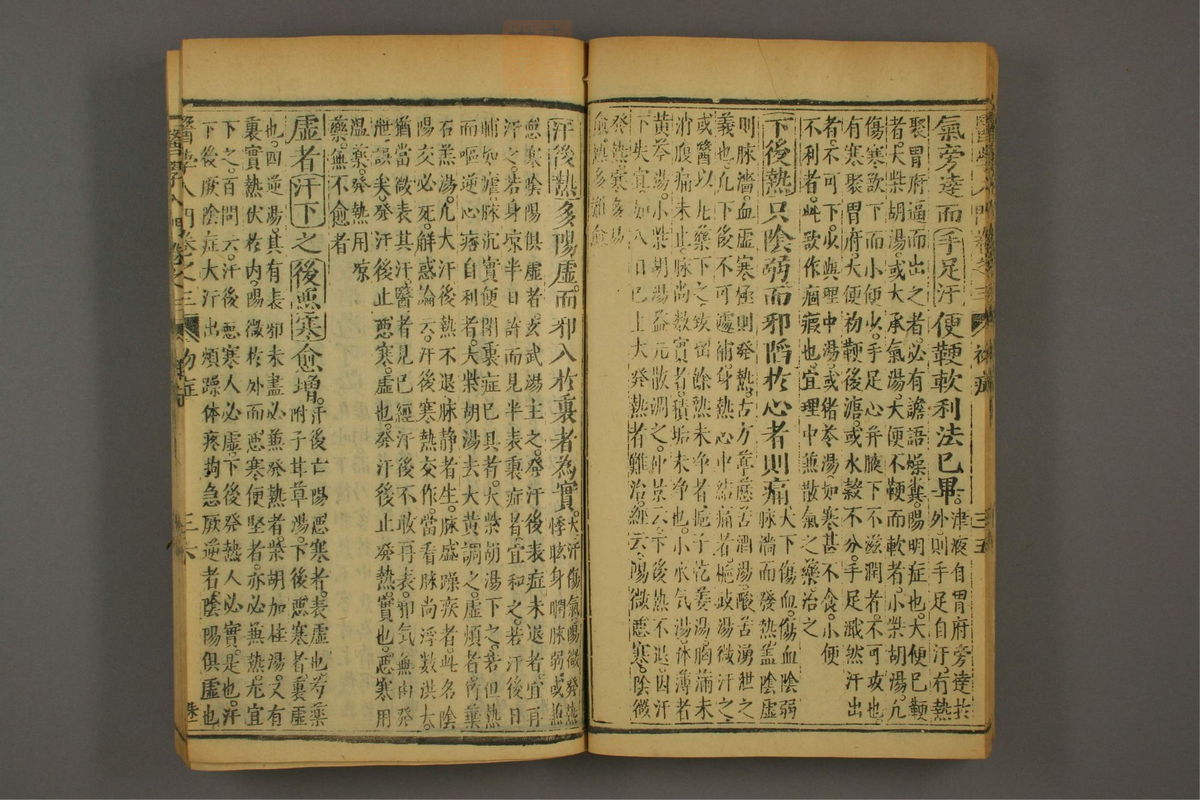 氣旁達而手足汗便鞕軟利法已畢。津液自胃府旁達於
外。則手足自汗有熱
聚胃府逼而出之者必有譫語燥糞。陽明症也。大便已鞕
者。大柴胡湯。或大承氣湯。大便不鞕而軟者。小柴胡湯。凡
傷寒欲下而小便少。手足心并腋下不滋潤者。不可攻也
有寒聚胃府。大便初鞕後溏。或水穀不分。手足濈然汗出
者。不可下。少與理中湯。或猪苓湯。如寒甚不食。小便
不利者。此欲作痼瘕也。宜理中無散氣之藥治之
下後熱只陰弱而邪陷於心者則痛大下傷血。傷血陰弱
脉濇而發熱。蓋陰虛
則脉濇。血虛寒極則發熱。古方葶藶苦酒湯。酸苦湧泄之
義也。凡下後不可遽補。身熱心中結痛者。梔豉湯微汗之
或醫以丸藥下之。致留餘熱未净者。梔子乾姜湯。胸滿未
消腹痛未止。脉尚数實者。積垢未净也。小水气湯。体薄者
黄芩湯。小柴胡湯。益元散調之。仲景云。下後熱不退。因汗
下失宜。如八日已上大發熱者難治。經云。陽微惡寒。陰微
發熱。寒多易
愈。熱多難愈
汗後熱多陽虛。而邪入於裏者為實。大汗傷氣陽微發熱
悸眩身瞤脉弱。或無
惡寒陰陽俱虛者。玄武湯主之。發汗後表症未退者。宜再
汗之。若身凉半日許而見半表裏症者。宜和之。若汗後日
晡如瘧。脉沉實便閉。裏症已具者。大柴胡湯下之。若但熱
而嘔逆心痞自利者。大柴胡湯去大黄調之。虛煩者
石羔湯。凡大汗後熱不退。脉静者生。脉盛躁疾者。此名陰
陽交必死。解惑論云。汗後寒熱交作。當看脉尚浮数洪大
猶當微表其汗。醫者見已經汗後不敢再表。邪气無由發
泄。誤矣。發汗後止惡寒。虛也。發汗後止發熱。實也。惡寒用
温藥。發熱用凉
藥。無不愈者
虛者汗下之後惡寒愈增。汗後亡陽惡寒者。表虛也。芍藥
附子甘草湯。下後惡寒者。裏虛
也。四逆湯。其有表邪未盡。必無發熱者。柴胡加桂湯。又有
裏實熱伏於內。陽微於外而惡寒。便堅者。亦必無熱。尤宜
下之。百問云。汗後惡寒人必虛。下後發熱人必實。是也。汗
下後厥陰症。大汗出煩躁。体疼拘急厥逆者。陰陽俱虛也
醫學入門卷之三
三六